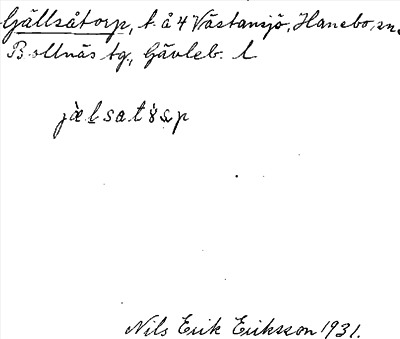 Gällsåtorp, t. å 4 Västansjö, Hanebo, sn.
Bollnäs tg., Gävleb. l
Nils Erik Eriksson 1931.